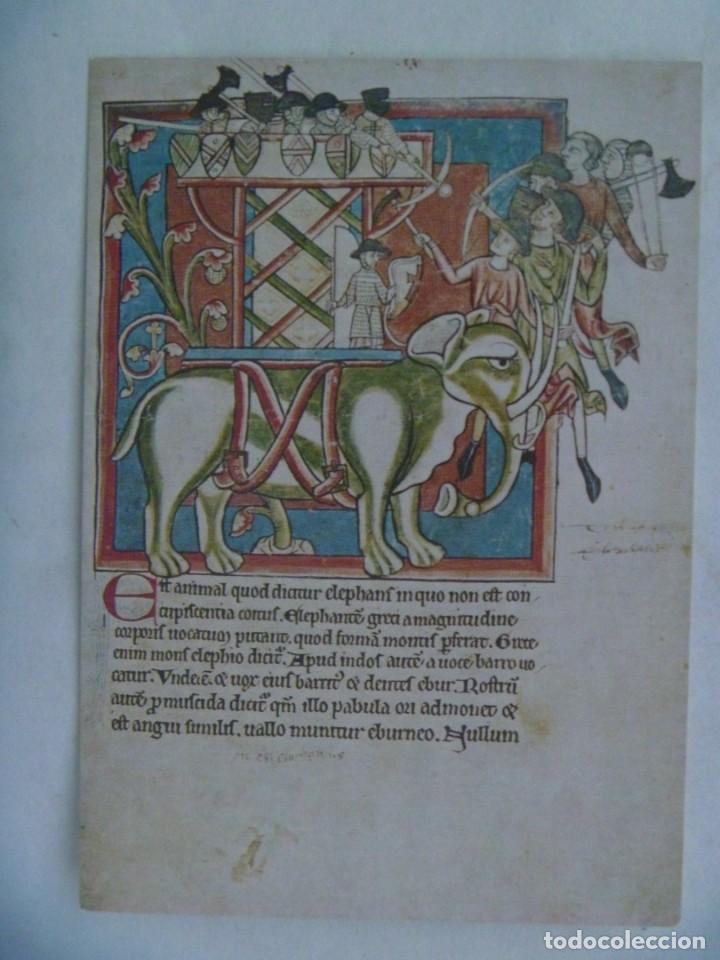 Est animal quod dicitur elephans in quo non est con
cupiscentia coitus. Elephantē greci a magnitudine
corporis uocatū putant. quod formā montis p̄ferat. Grece
enim mons elephio dicit᷑. Apud indos autē a uoce barro uo
catur. Vnde & uox eius barrit᷒ & dentes ebur. Rostrū
autē p̄muscida dicit᷑ qm̄ illo pabula ori admouet &
est angui similis. uallo munitur eburneo. Nullum
todocoleccion